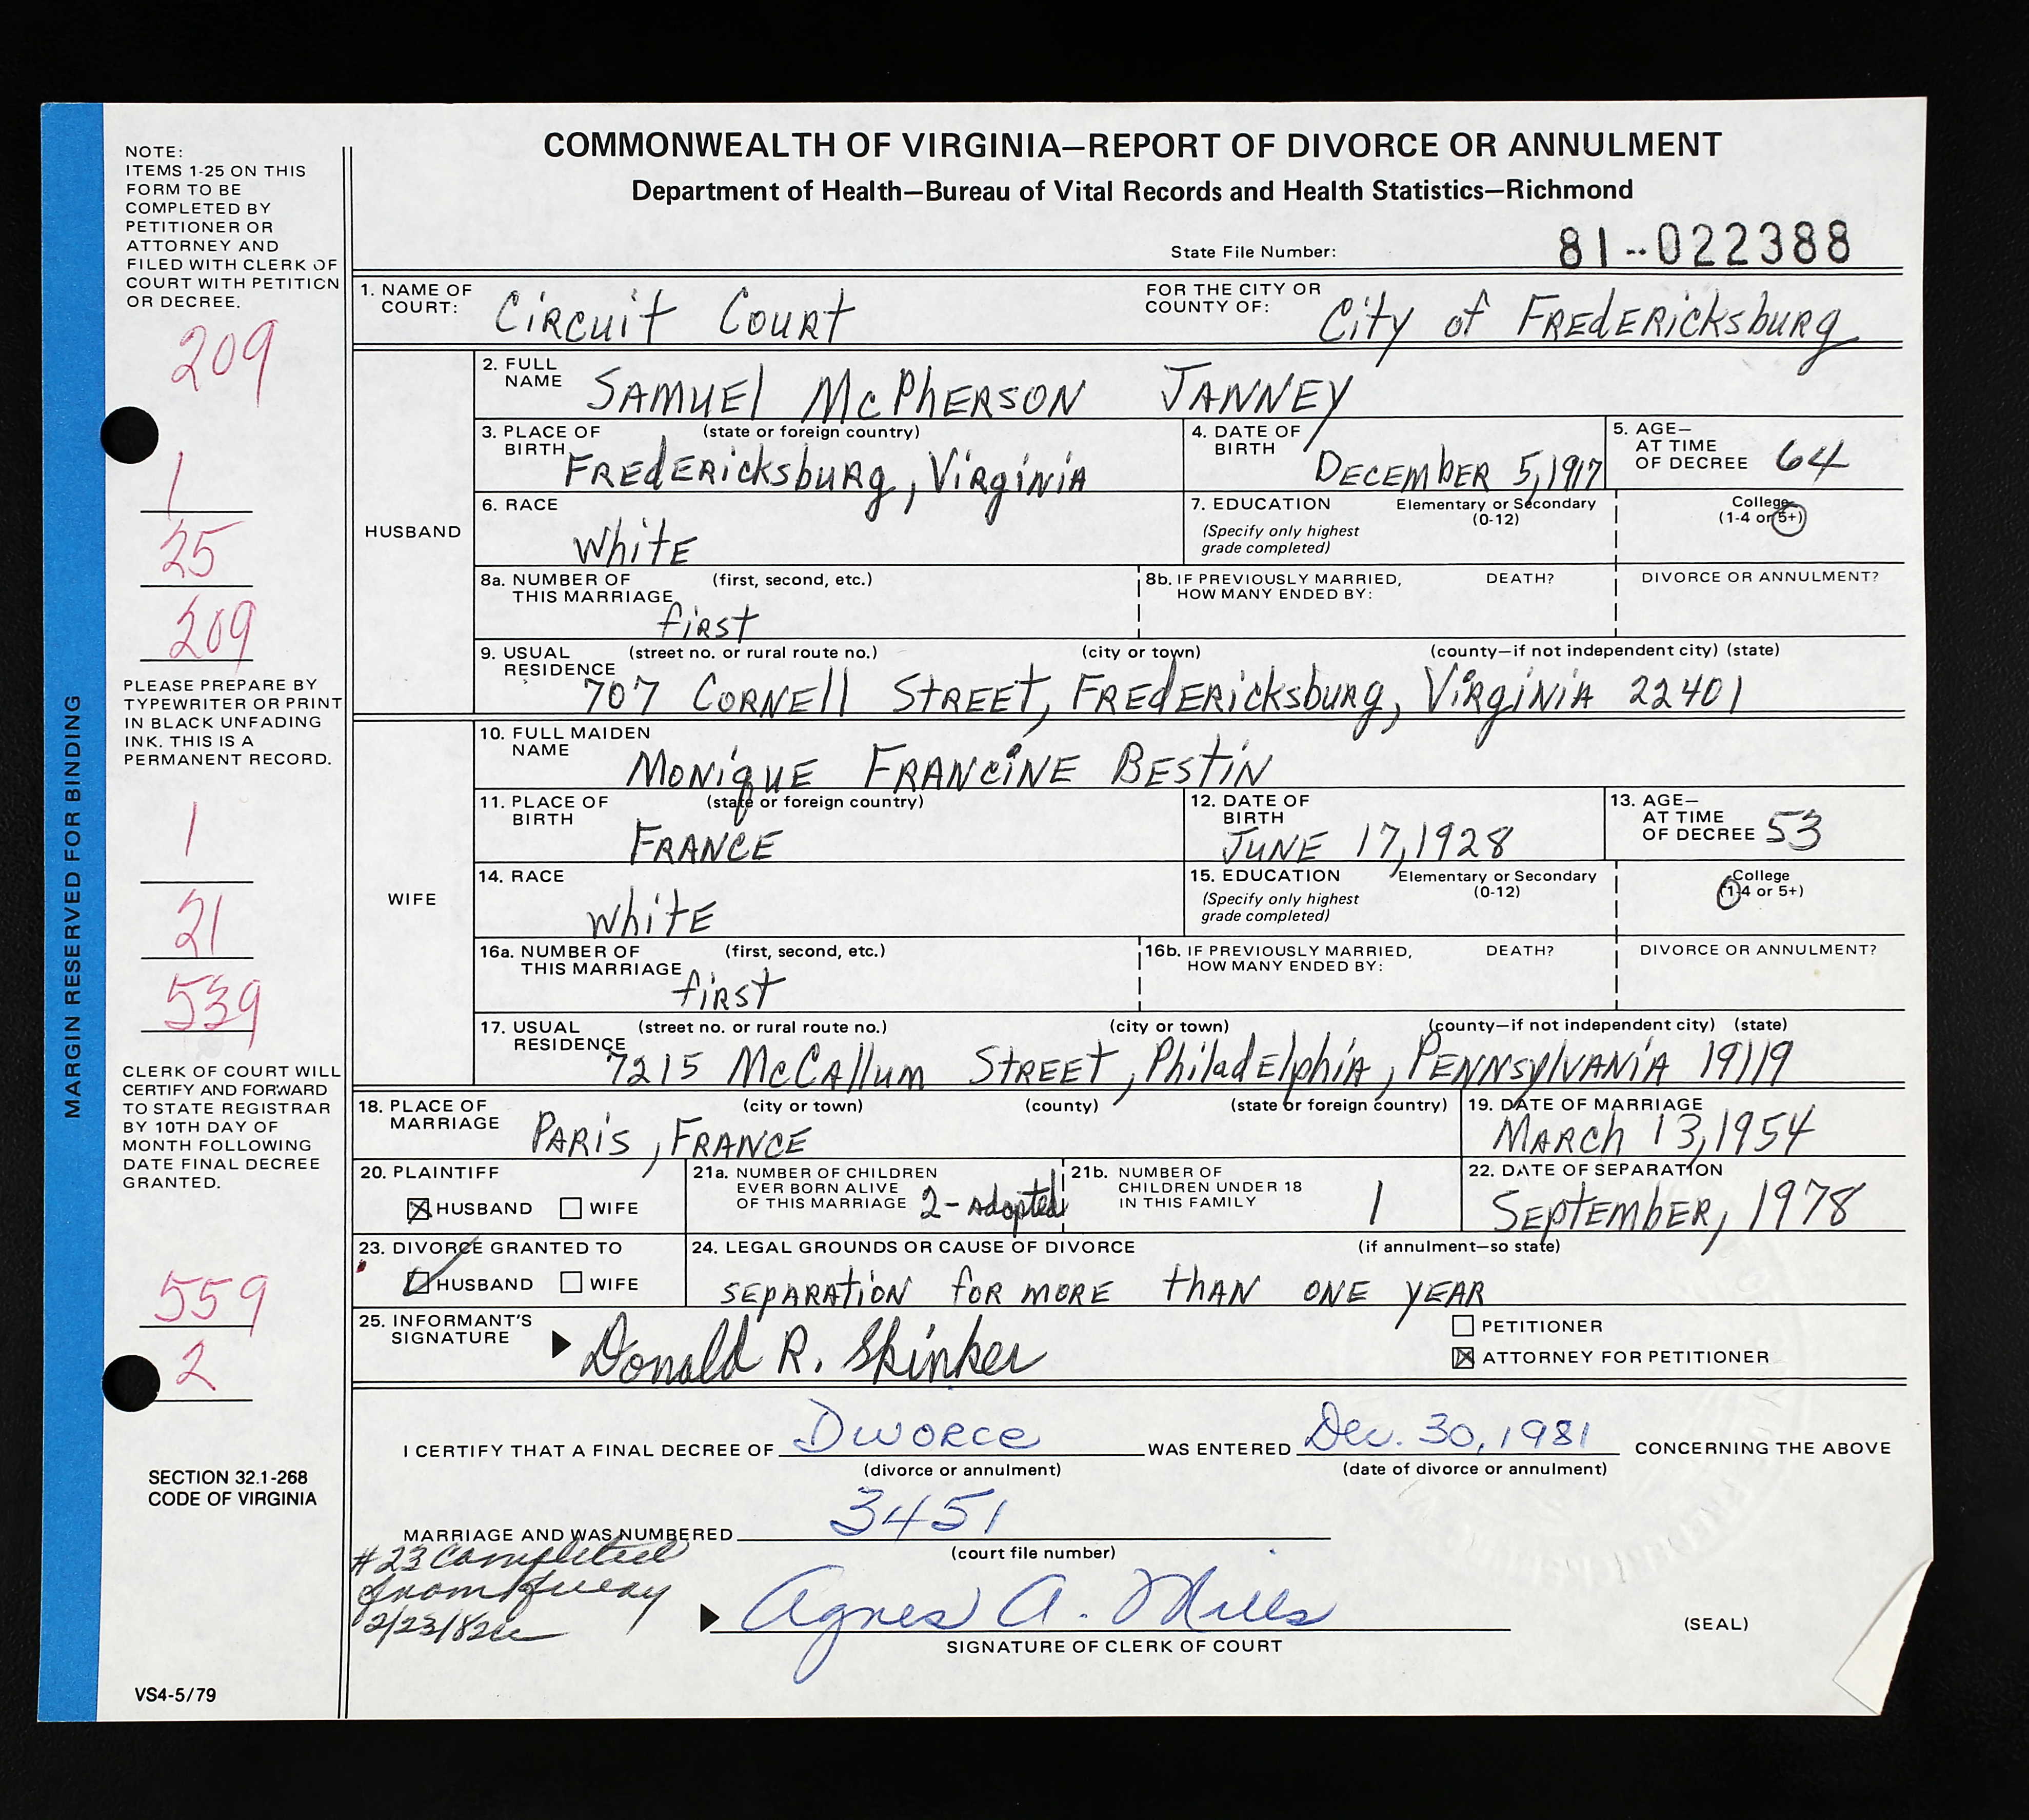 COMMONWEALTH OF VIRGINIA—REPORT OF DIVORCE OR ANNULMENT
Department of Health—Bureau of Vital Records and Health Statistics—Richmond
State File Number: 81--022388
NOTE:
ITEMS 1-25 ON THIS
FORM TO BE
COMPLETED BY
PETITIONER OR
ATTORNEY AND
FILED WITH CLERK OF
COURT WITH PETITION
OR DECREE.
209
1
25
209
PLEASE PREPARE BY
TYPEWRITER OR PRINT
IN BLACK UNFADING
INK. THIS IS A
PERMANENT RECORD.
1
21
539
CLERK OF COURT WILL
CERTIFY AND FORWARD
TO STATE REGISTRAR
BY 10TH DAY OF
MONTH FOLLOWING
DATE FINAL DECREE
GRANTED.
559
2
SECTION 32.1-268
CODE OF VIRGINIA
VS4-5/79
MARGIN RESERVED FOR BINDING
1. NAME OF COURT: Circuit Court FOR THE CITY OR COUNTY OF: City of Fredericksburg
HUSBAND
2. FULL NAME SAMUEL McPHERSON JANNEY
3. PLACE OF BIRTH (state or foreign country) Fredericksburg, Virginia
4. DATE OF BIRTH December 5, 1917
5. AGE— AT TIME OF DECREE 64
6. RACE White
7. EDUCATION (Specify only highest grade completed) Elementary or Secondary (0-12) College (1-4 or 5+)
8a. NUMBER OF THIS MARRIAGE (first, second, etc.) first
8b. IF PREVIOUSLY MARRIED, HOW MANY ENDED BY: DEATH? DIVORCE OR ANNULMENT?
9. USUAL RESIDENCE (street no. or rural route no.) (city or town) (county—if not independent city) (state)
707 Cornell Street, Fredericksburg, Virginia 22401
WIFE
10. FULL MAIDEN NAME Monique Francine Bestin
11. PLACE OF BIRTH (state or foreign country) France
12. DATE OF BIRTH June 17, 1928
13. AGE— AT TIME OF DECREE 53
14. RACE White
15. EDUCATION (Specify only highest grade completed) Elementary or Secondary (0-12) College (1-4 or 5+)
16a. NUMBER OF THIS MARRIAGE (first, second, etc.) first
16b. IF PREVIOUSLY MARRIED, HOW MANY ENDED BY: DEATH? DIVORCE OR ANNULMENT?
17. USUAL RESIDENCE (street no. or rural route no.) (city or town) (county—if not independent city) (state)
7215 McCallum Street, Philadelphia, Pennsylvania 19119
18. PLACE OF MARRIAGE (city or town) (county) (state or foreign country) Paris, France
19. DATE OF MARRIAGE March 13, 1954
20. PLAINTIFF HUSBAND WIFE
21a. NUMBER OF CHILDREN EVER BORN ALIVE OF THIS MARRIAGE 2-Adopted
21b. NUMBER OF CHILDREN UNDER 18 IN THIS FAMILY 1
22. DATE OF SEPARATION September, 1978
23. DIVORCE GRANTED TO HUSBAND WIFE
24. LEGAL GROUNDS OR CAUSE OF DIVORCE (if annulment—so state)
separation for more than one year
25. INFORMANT'S SIGNATURE Donald R. Skinker
PETITIONER
ATTORNEY FOR PETITIONER
I CERTIFY THAT A FINAL DECREE OF Divorce WAS ENTERED Dec. 30, 1981 CONCERNING THE ABOVE
(divorce or annulment) (date of divorce or annulment)
MARRIAGE AND WAS NUMBERED 3451
(court file number)
#23 Completed
from Query
2/23/82
Agnes A. Mills
SIGNATURE OF CLERK OF COURT
(SEAL)